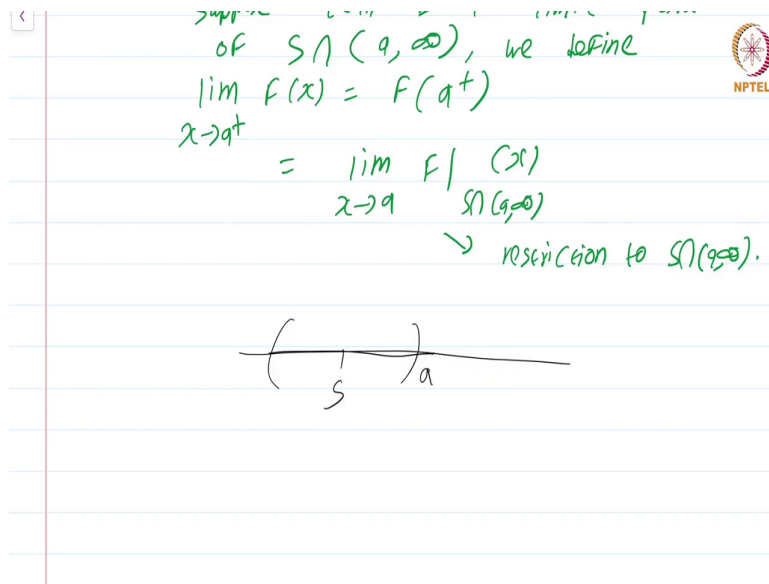 of S∩(a,∞), we define
lim F(x) = F(a⁺)
x→a⁺
= lim F| (x)
x→a S∩(a,∞)
↘ restriction to S∩(a,∞).
( ) a
S
NPTEL